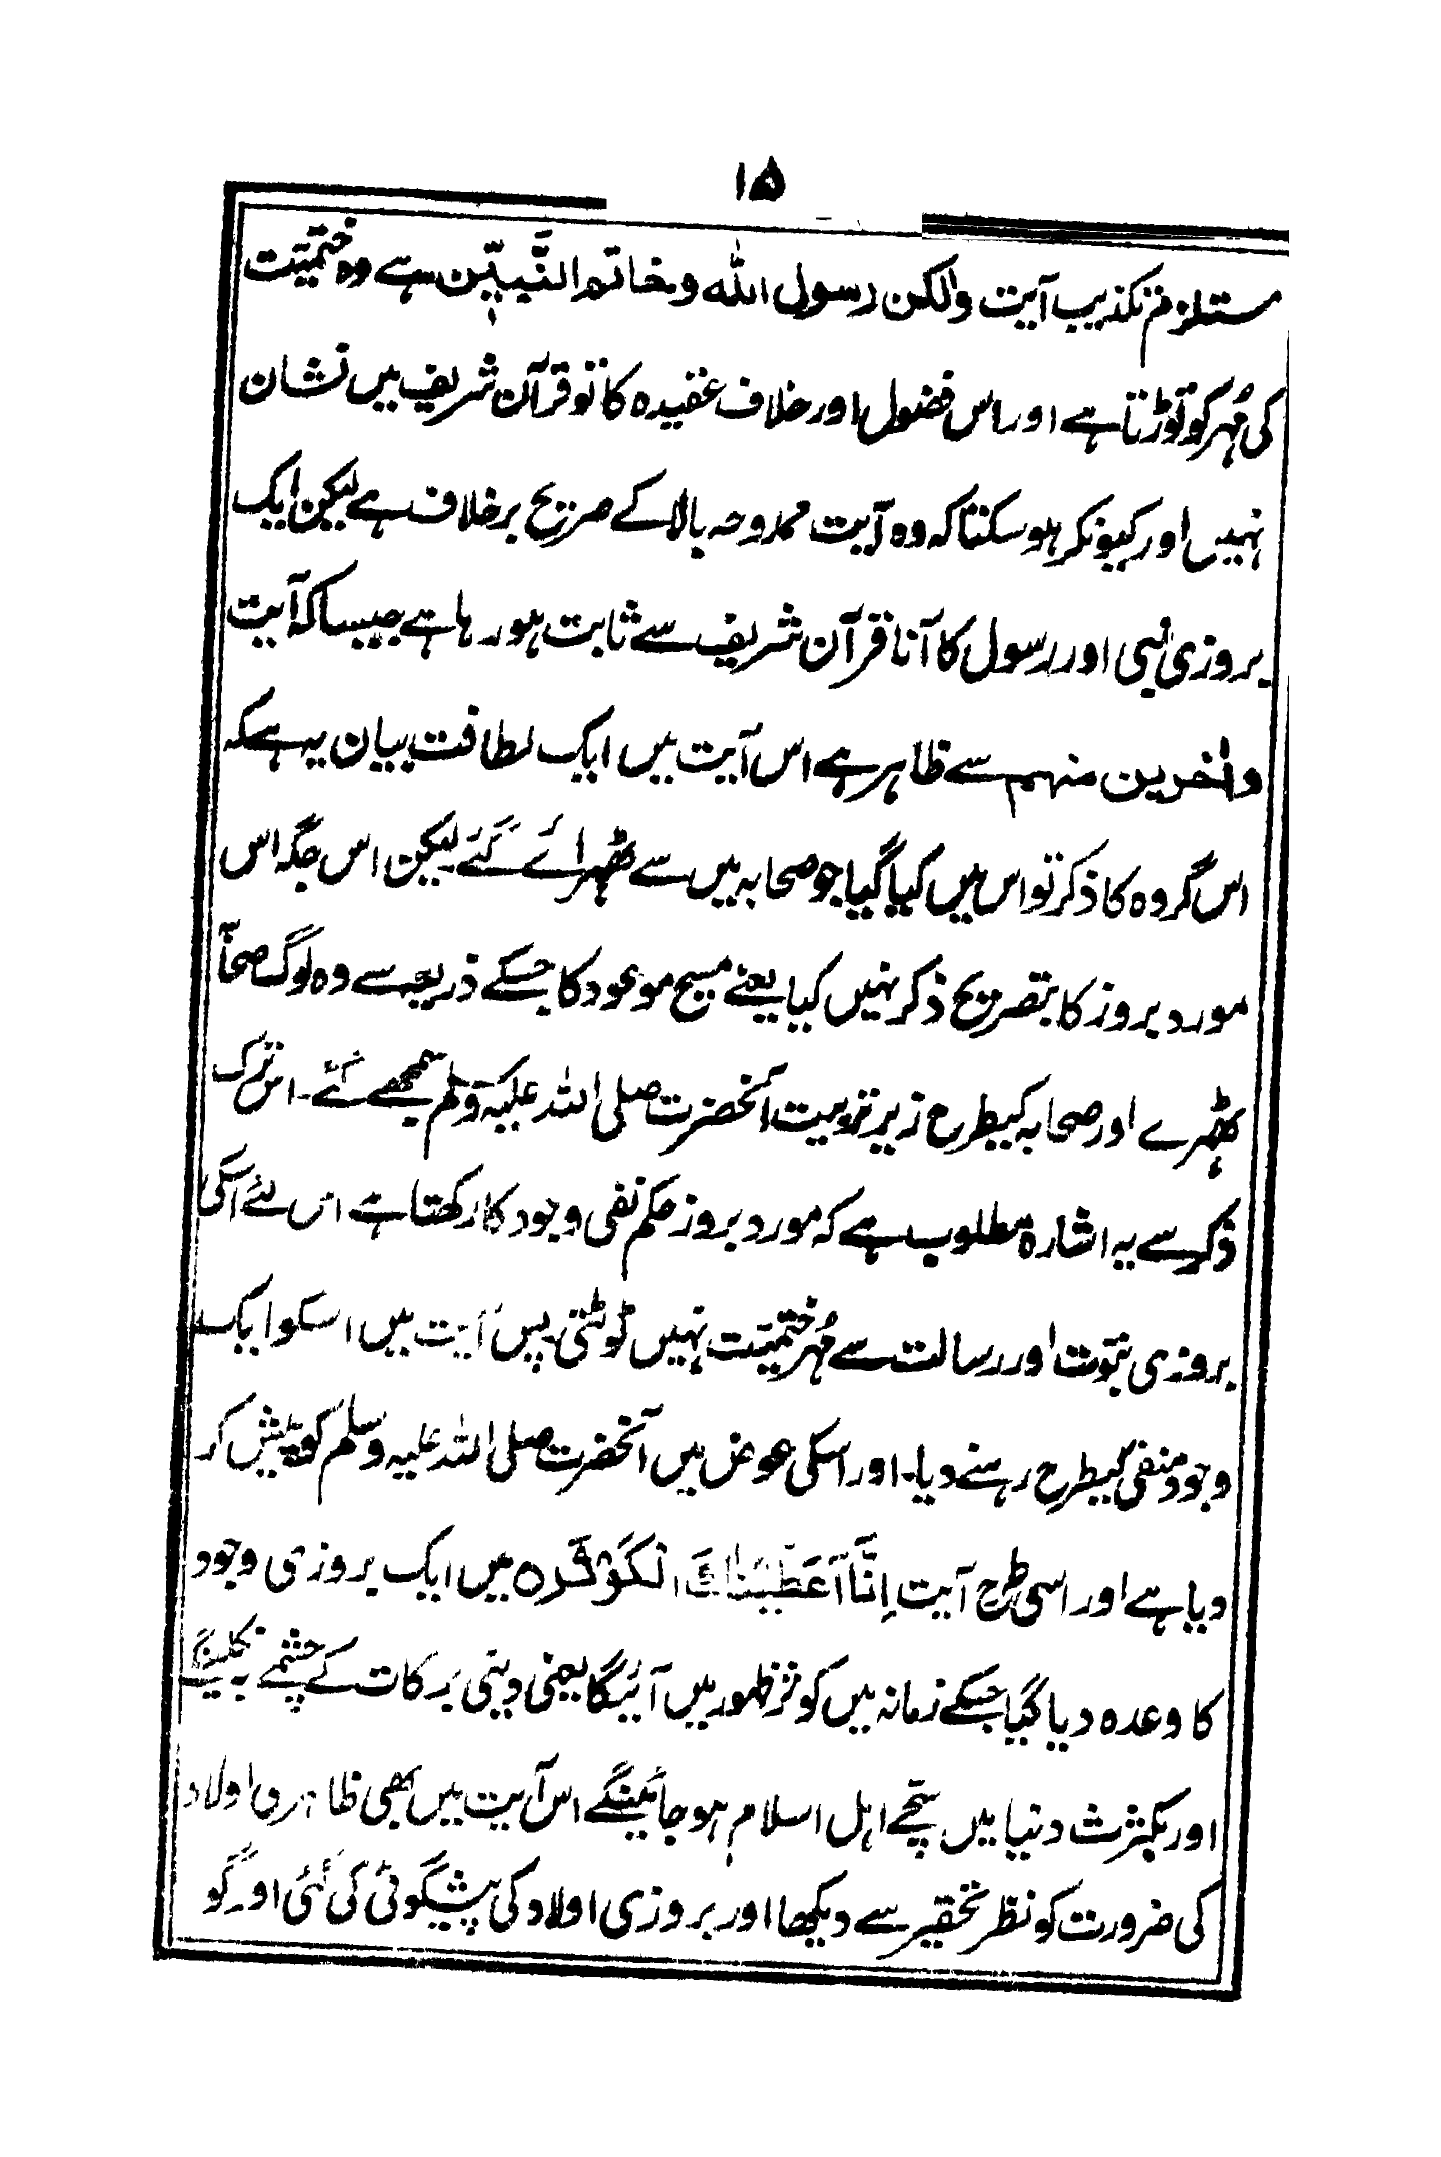 ۱۵
مستلزم تکذیب آیت ولٰکن رسول اللہ وخاتم النَّبیّین ہے وہ ختمیّت
کی مُہر کو توڑتا ہے اور اس فضول اور خلاف عقیدہ کا تو قرآن شریف میں نشان
نہیں اور کیونکر ہو سکتا کہ وہ آیت ممدوحہ بالا کے صریح برخلاف ہے لیکن ایک
بروزی نبی اور رسول کا آنا قرآن شریف سے ثابت ہو رہا ہے جیسا کہ آیت
وآخرین منہم سے ظاہر ہے اس آیت میں ایک لطافت بیان یہ ہے کہ
اس گروہ کا ذکر تو اس میں کیا گیا جو صحابہ میں سے ٹھہرائے گئے لیکن اس جگہ اس
مورد بروز کا بتصریح ذکر نہیں کیا یعنے مسیح موعود کا جسکے ذریعہ سے وہ لوگ صحابہ
ٹھہرے اور صحابہ کیطرح زیر تربیت آنحضرت صلی اللہ علیہ وسلم سمجھے گئے۔ اس ترک
ذکر سے یہ اشارہ مطلوب ہے کہ مورد بروز حکم نفی وجود کا رکھتا ہے اس لئے اسکی
بروزی نبوّت اور رسالت سے مُہر ختمیّت نہیں ٹوٹتی۔ پس آیت میں اسکو ایک
وجود منفی کیطرح رہنے دیا۔ اور اسکی عوض میں آنحضرت صلی اللہ علیہ وسلم کو پیش کر
دیا ہے اور اسی طرح آیت اِنَّآ اَعْطَیْنٰکَ الْکَوْثَرَہ میں ایک بروزی وجود
کا وعدہ دیا گیا جسکے زمانہ میں کوثر ظہور میں آئیگا یعنی دینی برکات کے چشمے بہ نکلینگے
اور بکثرت دنیا میں سچّے اہل اسلام ہو جائینگے اس آیت میں بھی ظاہری اولاد
کی ضرورت کو نظر تحقیر سے دیکھا اور بروزی اولاد کی پیشگوئی کی گئی اور گو